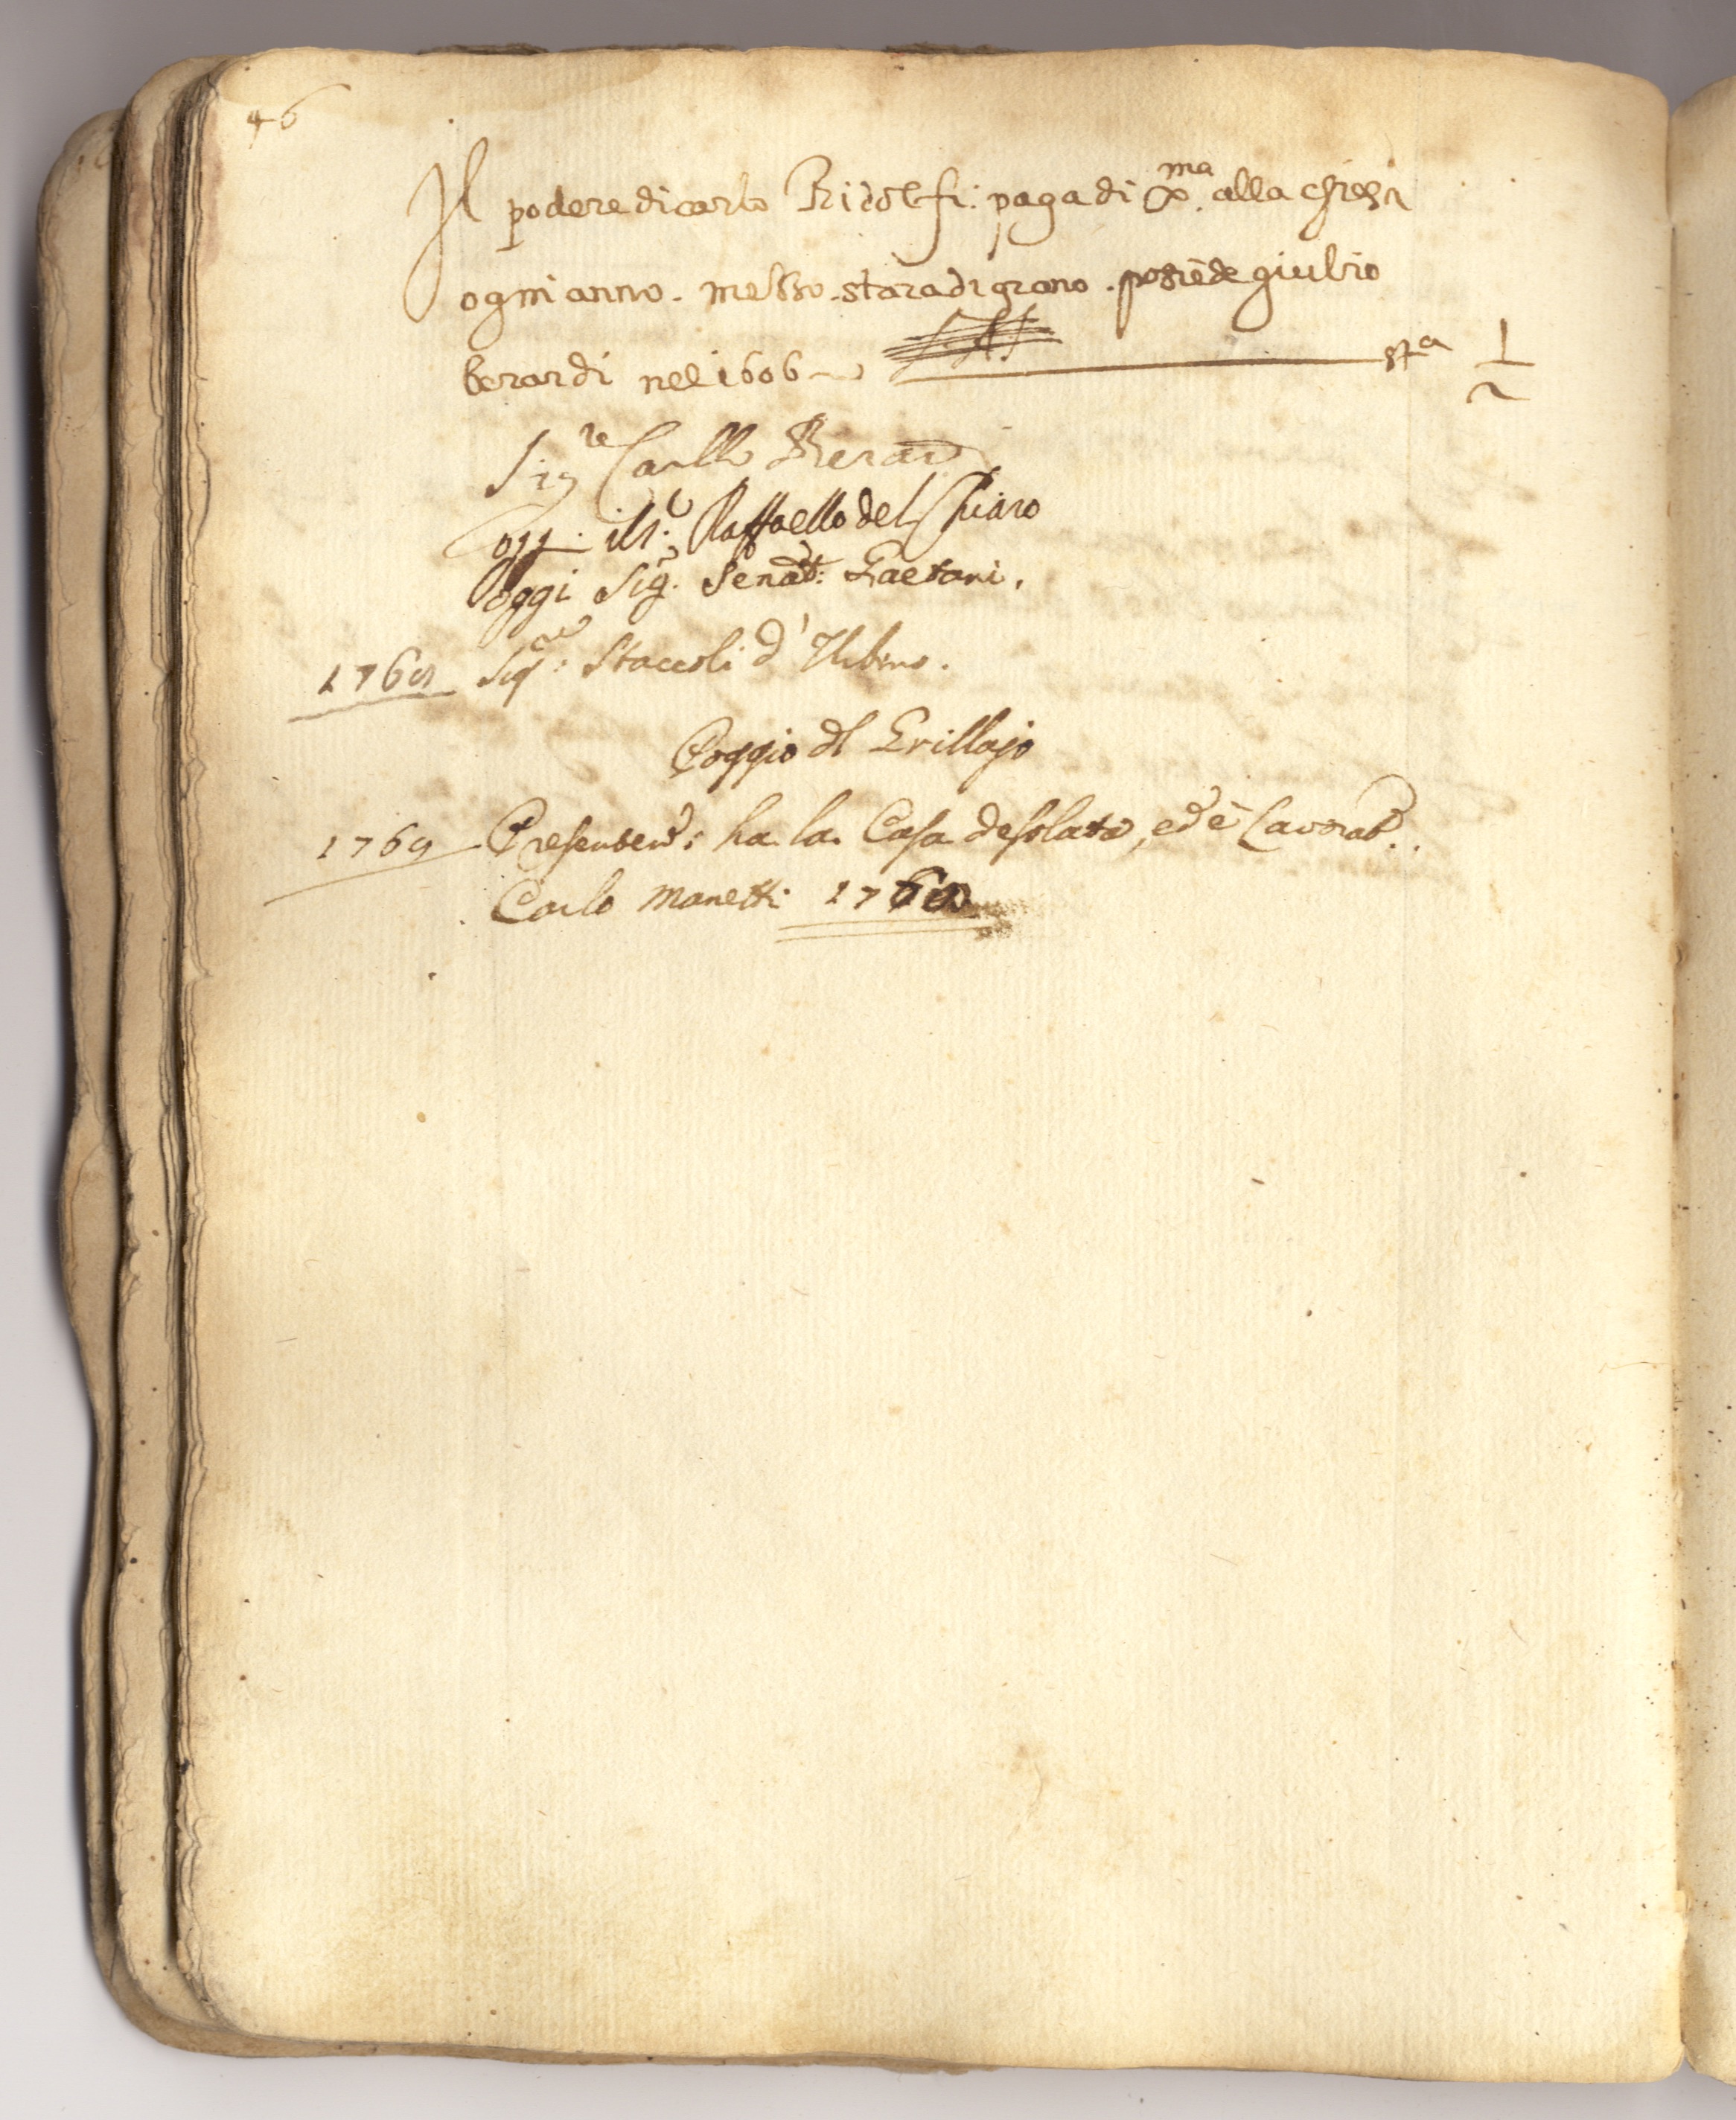 46
Il podere di carlo Ridolfi: paga di Xma. alla chiesa
ogni anno. messo. stara di grano. posiede giulio
berardi nel 1606
sta 1/2
Sigre Carllo Berardi
oggi il Sr. Raffaello del Chiaro
oggi Sig. Senat: Gaetani.
1769 Sigre: Staccoli d'Urbino.
Poggio dl Grillajo
1769 Presentem: ha la Casa desolata, ed è Lavorat..
Carlo Manetti 1769